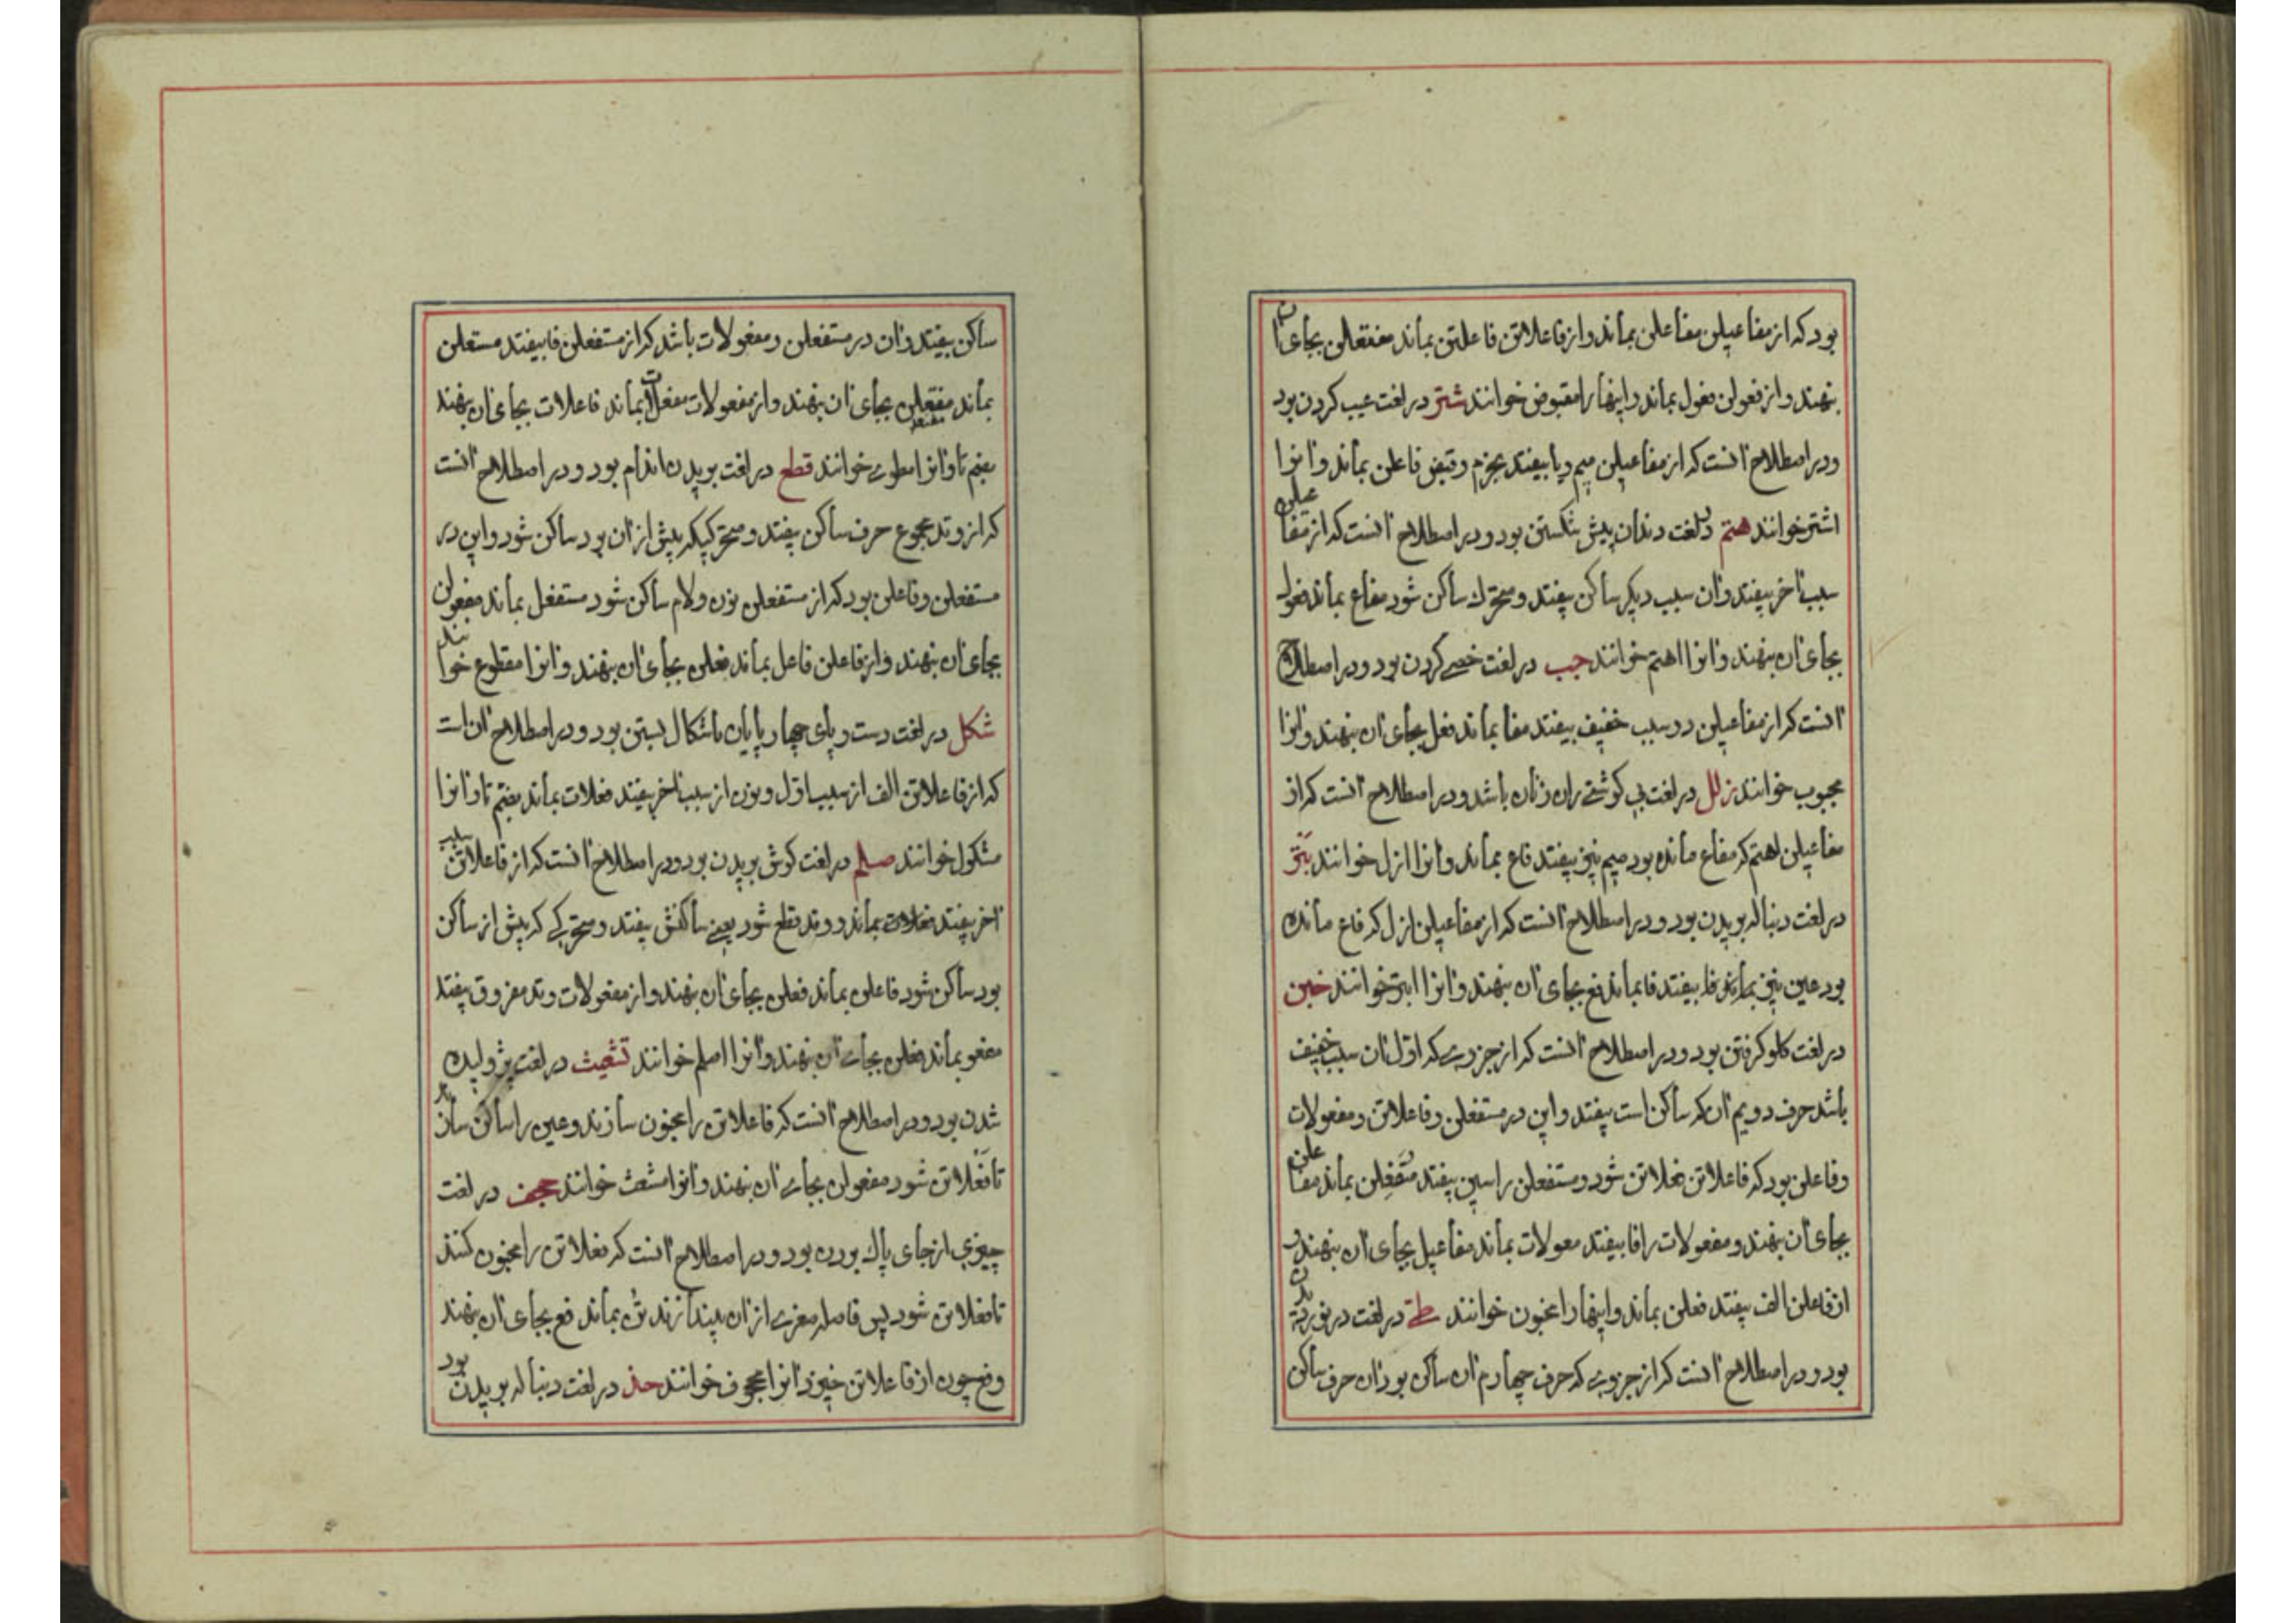 بود که از مفاعیلن مفاعلن بماند و از فاعلاتن فاعلتن بماند مفتعلن بجای ان
بنهند و از فعولن فعول بماند و اینها را مقبوض خوانند شتر در لغت عیب کردن بود
و در اصطلاح آنست که از مفاعیلن میم و یا بیفتد بخرم و قبض فاعلن بماند و انرا
اشتر خوانند هتم در لغت دندان پیش شکستن بود و در اصطلاح آنست که از مفاعیلن
سبب اخر بیفتد و ان سبب دیکر ساکن بیفتد و متحرک ساکن شود مفاع بماند فعول
بجای ان بنهند و انرا اهتم خوانند جب در لغت خصی کردن بود و در اصطلاح
آنست که از مفاعیلن دو سبب خفیف بیفتد مفا بماند فعل بجای ان بنهند و انرا
مجبوب خوانند زلل در لغت بی کوشتی ران زنان باشد و در اصطلاح آنست که از
مفاعیلن اهتم که مفاع مانده بود میم نیز بیفتد فاع بماند و انرا ازل خوانند بتر
در لغت دنباله بریدن بود و در اصطلاح آنست که از مفاعیلن ازل که فاع مانده
بود عین نیز بیفتد فا بماند فع بجای ان بنهند و انرا ابتر خوانند خبن
در لغت کلو کرفتن بود و در اصطلاح آنست که از جزوی که اول ان سبب خفیف
باشد حرف دویم ان که ساکن است بیفتد و این در مستفعلن و فاعلاتن و مفعولات
و فاعلن بود که فاعلاتن فعلاتن شود و مستفعلن را سین بیفتد متفعلن بماند مفاعلن
بجای ان بنهند و مفعولات را فا بیفتد معولات بماند مفاعیل بجای ان بنهند و
از فاعلن الف بیفتد فعلن بماند و اینها را مخبون خوانند طی در لغت در نوردیدن
بود و در اصطلاح آنست که از جزوی که حرف چهارم ان ساکن بود ان حرف ساکن
ساکن بیفتد و ان در مستفعلن و مفعولات باشد که از مستفعلن فا بیفتد مستعلن
بماند مفتعلن بجای ان بنهند و از مفعولات مفعلات بماند فاعلات بجای ان بنهند
بضم تا و انرا مطوی خوانند قطع در لغت بریدن اندام بود و در اصطلاح آنست
که از وتد مجموع حرف ساکن بیفتد و متحرکیکه پیش از ان بود ساکن شود و این در
مستفعلن و فاعلن بود که از مستفعلن نون و لام ساکن شود مستفعل بماند مفعولن
بجای ان بنهند و از فاعلن فاعل بماند فعلن بجای ان بنهند و انرا مقطوع خوانند
شکل در لغت دست و پای چهار پایان باشکال بستن بود و در اصطلاح ان است
که از فاعلاتن الف از سبب اول و نون از سبب اخر بیفتد فعلات بماند بضم تا و انرا
مشکول خوانند صلم در لغت کوش بریدن بود و در اصطلاح آنست که از فاعلاتن سبب
اخر بیفتد بماند و وتد قطع شود یعنی ساکنش بیفتد و متحرکی که پیش از ساکن
بود ساکن شود فاعلن بماند فعلن بجای ان بنهند و از مفعولات وتد مفروق بیفتد
مفعو بماند فعلن بجای ان بنهند و انرا اصلم خوانند تشعیث در لغت پژولیده
شدن بود و در اصطلاح آنست که فاعلاتن را مخبون سازند و عین را ساکن سازند
تا فعلاتن شود مفعولن بجای ان بنهند و انرا مشعث خوانند جحف در لغت
چیزی از جای پاک بردن بود و در اصطلاح آنست که فعلاتن را مخبون کنند
تا فعلاتن شود پس فاصله صغری از ان بیندازند تن بماند فع بجای ان بنهند
و فع چون از فاعلاتن خیزد انرا مجحوف خوانند حذ در لغت دنباله بریدن بود